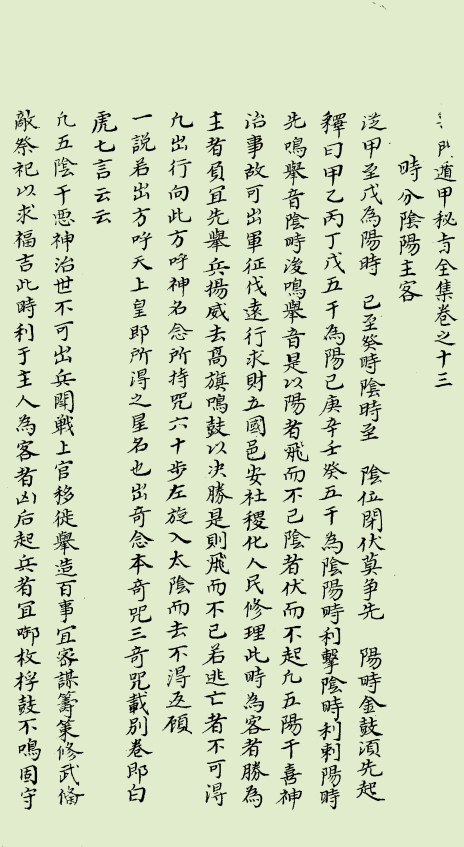 門遁甲秘与全集卷之十三
時分陰陽主客
從甲至戊為陽時 己至癸時陰時至 陰位閉伏莫争先 陽時金鼓湏先起
釋曰甲乙丙丁戊五干為陽己庚辛壬癸五干為陰陽時利擊陰時利刺陽時
先鳴舉音陰時後鳴舉音是以陽者飛而不已陰者伏而不起凢五陽干喜神
治事故可出軍征伐遠行求財立國邑安社稷化人民修理此時為客者勝為
主者負宜先舉兵揚威去高旗鳴鼓以决勝是則飛而不已若逃亡者不可得
凢出行向此方呼神名念所持咒六十步左旋入太陰而去不得返顧
一説若出方呼天上皇即所淂之星名也出奇念本奇咒三奇咒載別卷即白
虎七言云云
凢五陰干悪神治世不可出兵鬪戰上官移徙舉造百事宜密謀籌策修武俻
敵祭祀以求福吉此時利于主人為客者凶后起兵者宜啣枚桴鼓不鳴固守